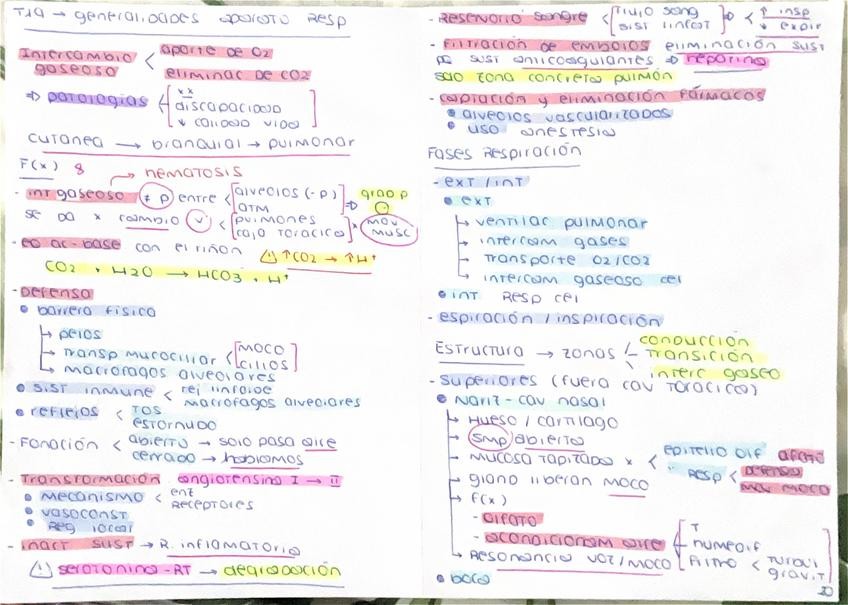 T19 → generalidades aparato Resp
Intercambio gaseoso < aporte de O2
eliminac de CO2
⇒ patologías < xx
discapacidad
↓ calidad vida
cutanea → branquial → pulmonar
F(x) 8 → hematosis
- int gaseoso ≠ P entre < alveolos (-P)
ATM ⇒ grad P
se da x cambio V < pulmones
caja toracica x mov musc
- eq ac-base con el riñon ⚠ ↑CO2 → ↑H+
CO2 + H2O → HCO3 + H+
- Defensa
• barrera física
↳ pelos
↳ transp mucociliar < moco
cilios
↳ macrofagos alveolares
• sist inmune < tej linfoide
macrofagos alveolares
• reflejos < tos
estornudo
- Fonación < abierto → solo pasa aire
cerrado → hablamos
- Transformación angiotensina I → II
• mecanismo < enz
receptores
• vasoconst
• Reg local
- inact sust → R. inflamatoria
⚠ serotonina - RT → degradación
- Reservorio sangre < flujo sang
sist linfat ⇒ < ↑ insp
↓ expir
- Filtración de embolos eliminación sust
sust anticoagulantes ⇒ heparina
solo zona concreta pulmón
- captación y eliminación fármacos
• alveolos vascularizados
• uso anestesia
Fases Respiración
- ext / int
• ext
↳ ventilac pulmonar
↳ intercam gases
↳ transporte O2/CO2
↳ intercam gaseoso cel
• int Resp cel
- espiración / inspiración
Estructura → zonas < conducción
transición
interc gaseo
- superiores (fuera cav toracica)
• Nariz - cav nasal
↳ Hueso / cartilago
↳ smp abierta
↳ mucosa tapizada x < epitelio olf olfato
resp < defensa
mov moco
↳ gland liberan moco
↳ f(x)
- olfato
- acondicionam aire < T
humedif
filtro < turbul
gravit
↳ Resonancia voz/moco
• boca
20